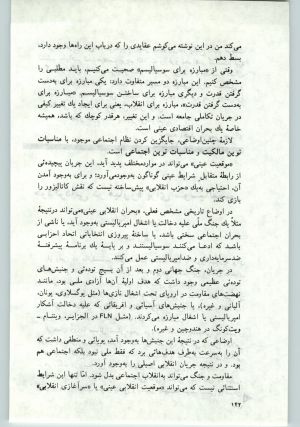 می‌کند من در این نوشته می‌کوشم عقایدی را که درباب این راه‌ها وجود دارد،
بسط دهم.
وقتی از «مبارزه برای سوسیالیسم» صحبت می‌کنیم، باید مطلبی را
مشخص کنیم. این مبارزه دو مسیر متفاوت دارد: یکی مبارزه برای به‌دست
گرفتن قدرت و دیگری مبارزه برای ساختن سوسیالیسم. مبارزه برای
به‌دست گرفتن قدرت، مبارزه برای انقلاب، یعنی برای ایجاد یك تغییر کیفی
در جریان تکاملی جامعه است، و این تغییر، هرقدر کوچك که باشد، همیشه
خاصهٔ یك بحران اقتصادی عینی است.
لازمهٔ چنین اوضاعی، جایگزین کردن نظام اجتماعی موجود، با مناسبات
نوین مالکیت و مناسبات نوین اجتماعی است.
«موقعیت عینی» می‌تواند در موارد مختلف پدید آید، این جریان پیچیده‌ئی
از رابطهٔ متقابل شرایط عینی گوناگون به‌وجود می‌آورد؛ و برای به‌وجود آمدن
آن، احتیاجی به‌یك «حزب انقلابی» پیش‌ساخته نیست که نقش کاتالیزور را
بازی کند.
در اوضاع تاریخی مشخص فعلی، «بحران انقلابی عینی» می‌تواند درنتیجهٔ
مثلا یك جنگ ملی علیه دخالت یا اشغال امپریالیستی به‌وجود آید، یا ناشی از
بحران اجتماعی سختی باشد، یا ساختهٔ پیروزی انتخاباتی اتحاد احزابی
باشد که ادعا می‌کنند سوسیالیستند و بر پایهٔ یك برنامهٔ پیشرفتهٔ
ضدسرمایه‌داری و ضدامپریالیستی عمل می‌کنند.
در جریان، جنگ جهانی دوم و بعد از آن بسیج توده‌ئی و جنبش‌های
توده‌ئی عظیمی وجود داشت که هدف اولیهٔ آن‌ها آزادی ملی بود. مانند
نهضت‌های مقاومت در اروپای تحت اشغال نازی‌ها (مثل یوگسلاوی، یونان،
آلبانی و غیره)، یا جنبش‌های آسیائی و افریقائی که علیه دخالت آشکار
امپریالیستی یا اشغال مبارزه می‌کردند. (مثل FLN در الجزایر، ویتنام ــ
ویت‌کونگ در هندوچین و غیره)
اوضاعی که در نتیجهٔ این جنبش‌ها به‌وجود آمد، پویائی و منطقی داشت که
آن را به‌سرعت به‌طرف هدف‌هائی برد که فقط ملی نبود بلکه اجتماعی هم
بود. و در نتیجه جریان انقلابی اصیلی را به‌وجود آورد.
مقاومت و جنگ می‌تواند به‌انقلاب اجتماعی بدل شود. امّا تنها این شرایط
استثنائی نیست که می‌تواند «موقعیت انقلابی عینی» یا «سرآغازی انقلابی»
۱۴۲